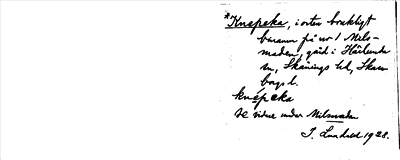 *Knepeka, i orten brukligt
binamn på nr 1 Nils-
maden, gård i Härlunda
sn, Skånings hd, Skara-
borgs l.
knépeka
Se vidare under Nilsmaden
J. Lundahl 1928.